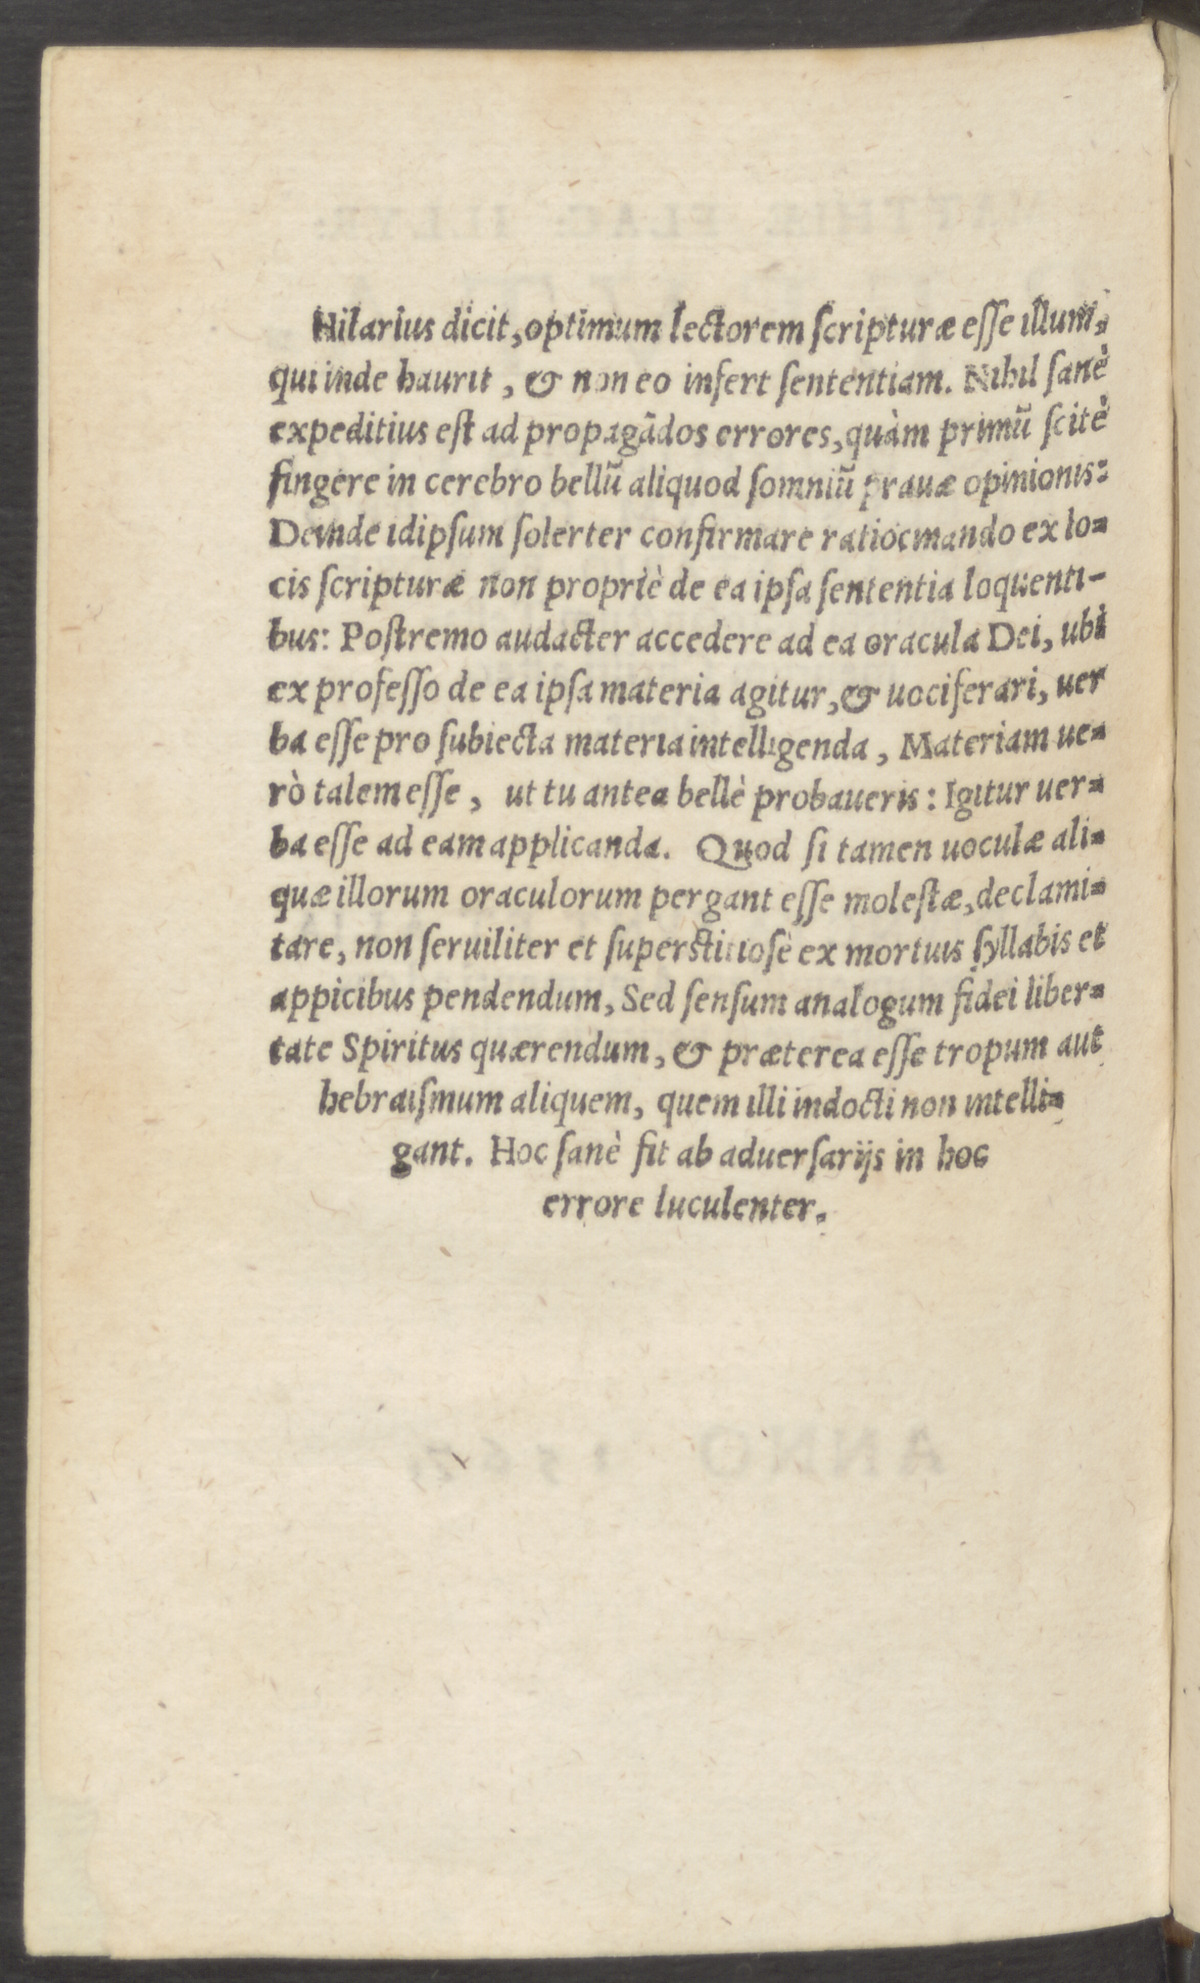 Hilarius dicit, optimum lectorem ſcripturæ eſſe illum,
qui inde haurit, & non eo infert ſententiam. Nihil ſanè
expeditius eſt ad propagãdos errores, quàm primũ ſcitè
fingere in cerebro bellũ aliquod ſomniũ prauæ opinionis:
Deinde idipſum ſolerter confirmare ratiocinando ex lo-
cis ſcripturæ non propriè de ea ipſa ſententia loquenti-
bus: Poſtremo audacter accedere ad ea oracula Dei, ubi
ex profeſſo de ea ipſa materia agitur, & uociferari, uer
ba eſſe pro ſubiecta materia intelligenda, Materiam ue-
rò talem eſſe, ut tu antea bellè probaueris: Igitur uer-
ba eſſe ad eam applicanda. Quod ſi tamen uoculæ ali-
quæ illorum oraculorum pergant eſſe moleſtæ, declami-
tare, non ſeruiliter et ſuperſtitioſè ex mortuis ſyllabis et
appicibus pendendum, Sed ſenſum analogum fidei liber-
tate Spiritus quærendum, & præterea eſſe tropum aut
hebraiſmum aliquem, quem illi indocti non intelli-
gant. Hoc ſanè fit ab aduerſarijs in hoc
errore luculenter.